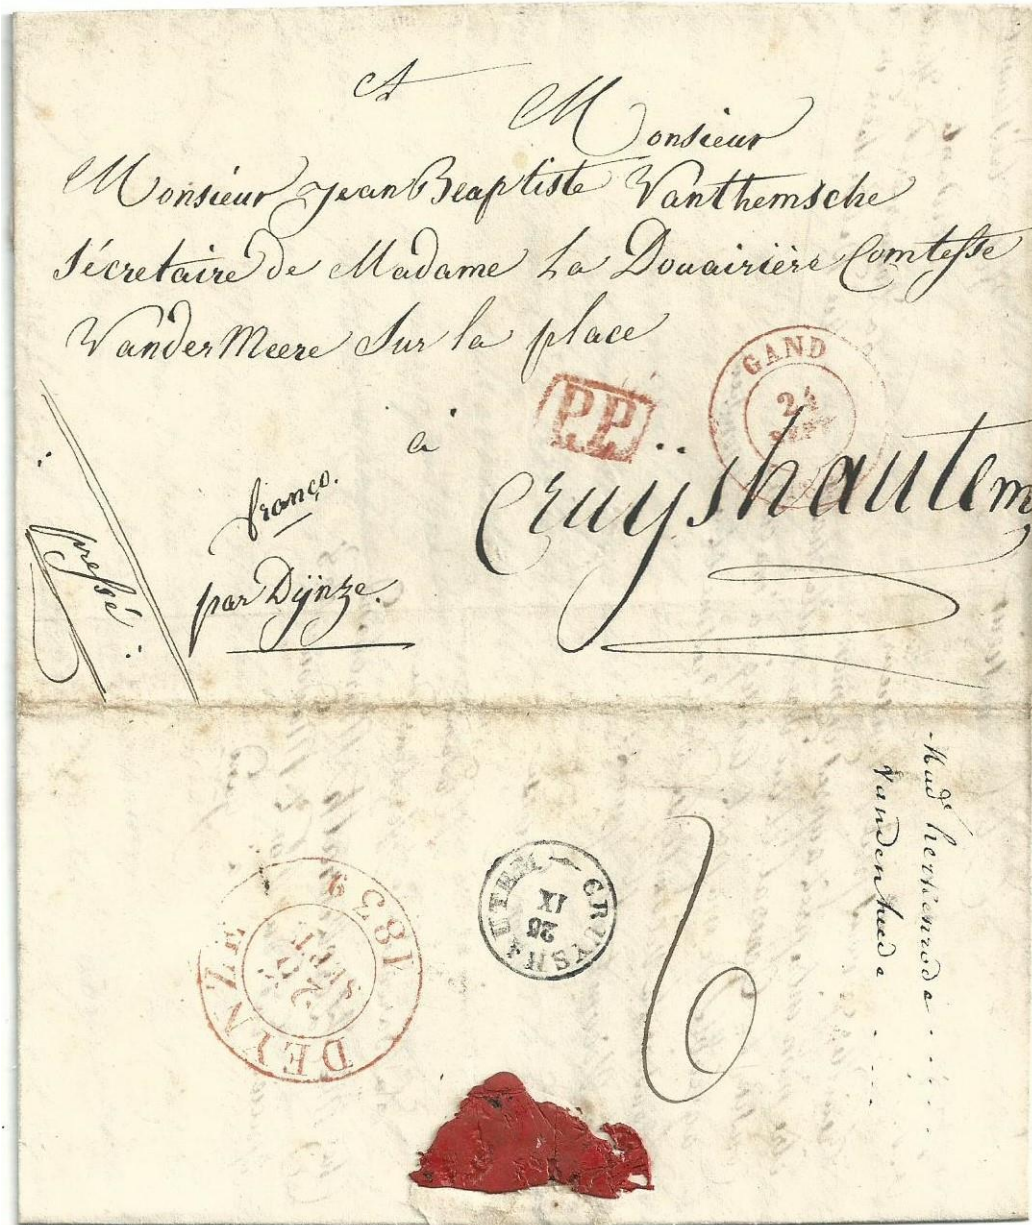 A
Monsieur
Monsieur Jean Beaptiste Vanthemsche
Sécretaire de Madame La Douairière Comtesse
VanderMeere Sur la place
GAND
24
SEPT
P.P.
à Cruÿshautem
franço.
par Dÿnze.
pressé
DEYNZE 1839
SEPT
CRUYSHAUTEM
25
IX
6
Mad.e herkenrode
Vandenhede